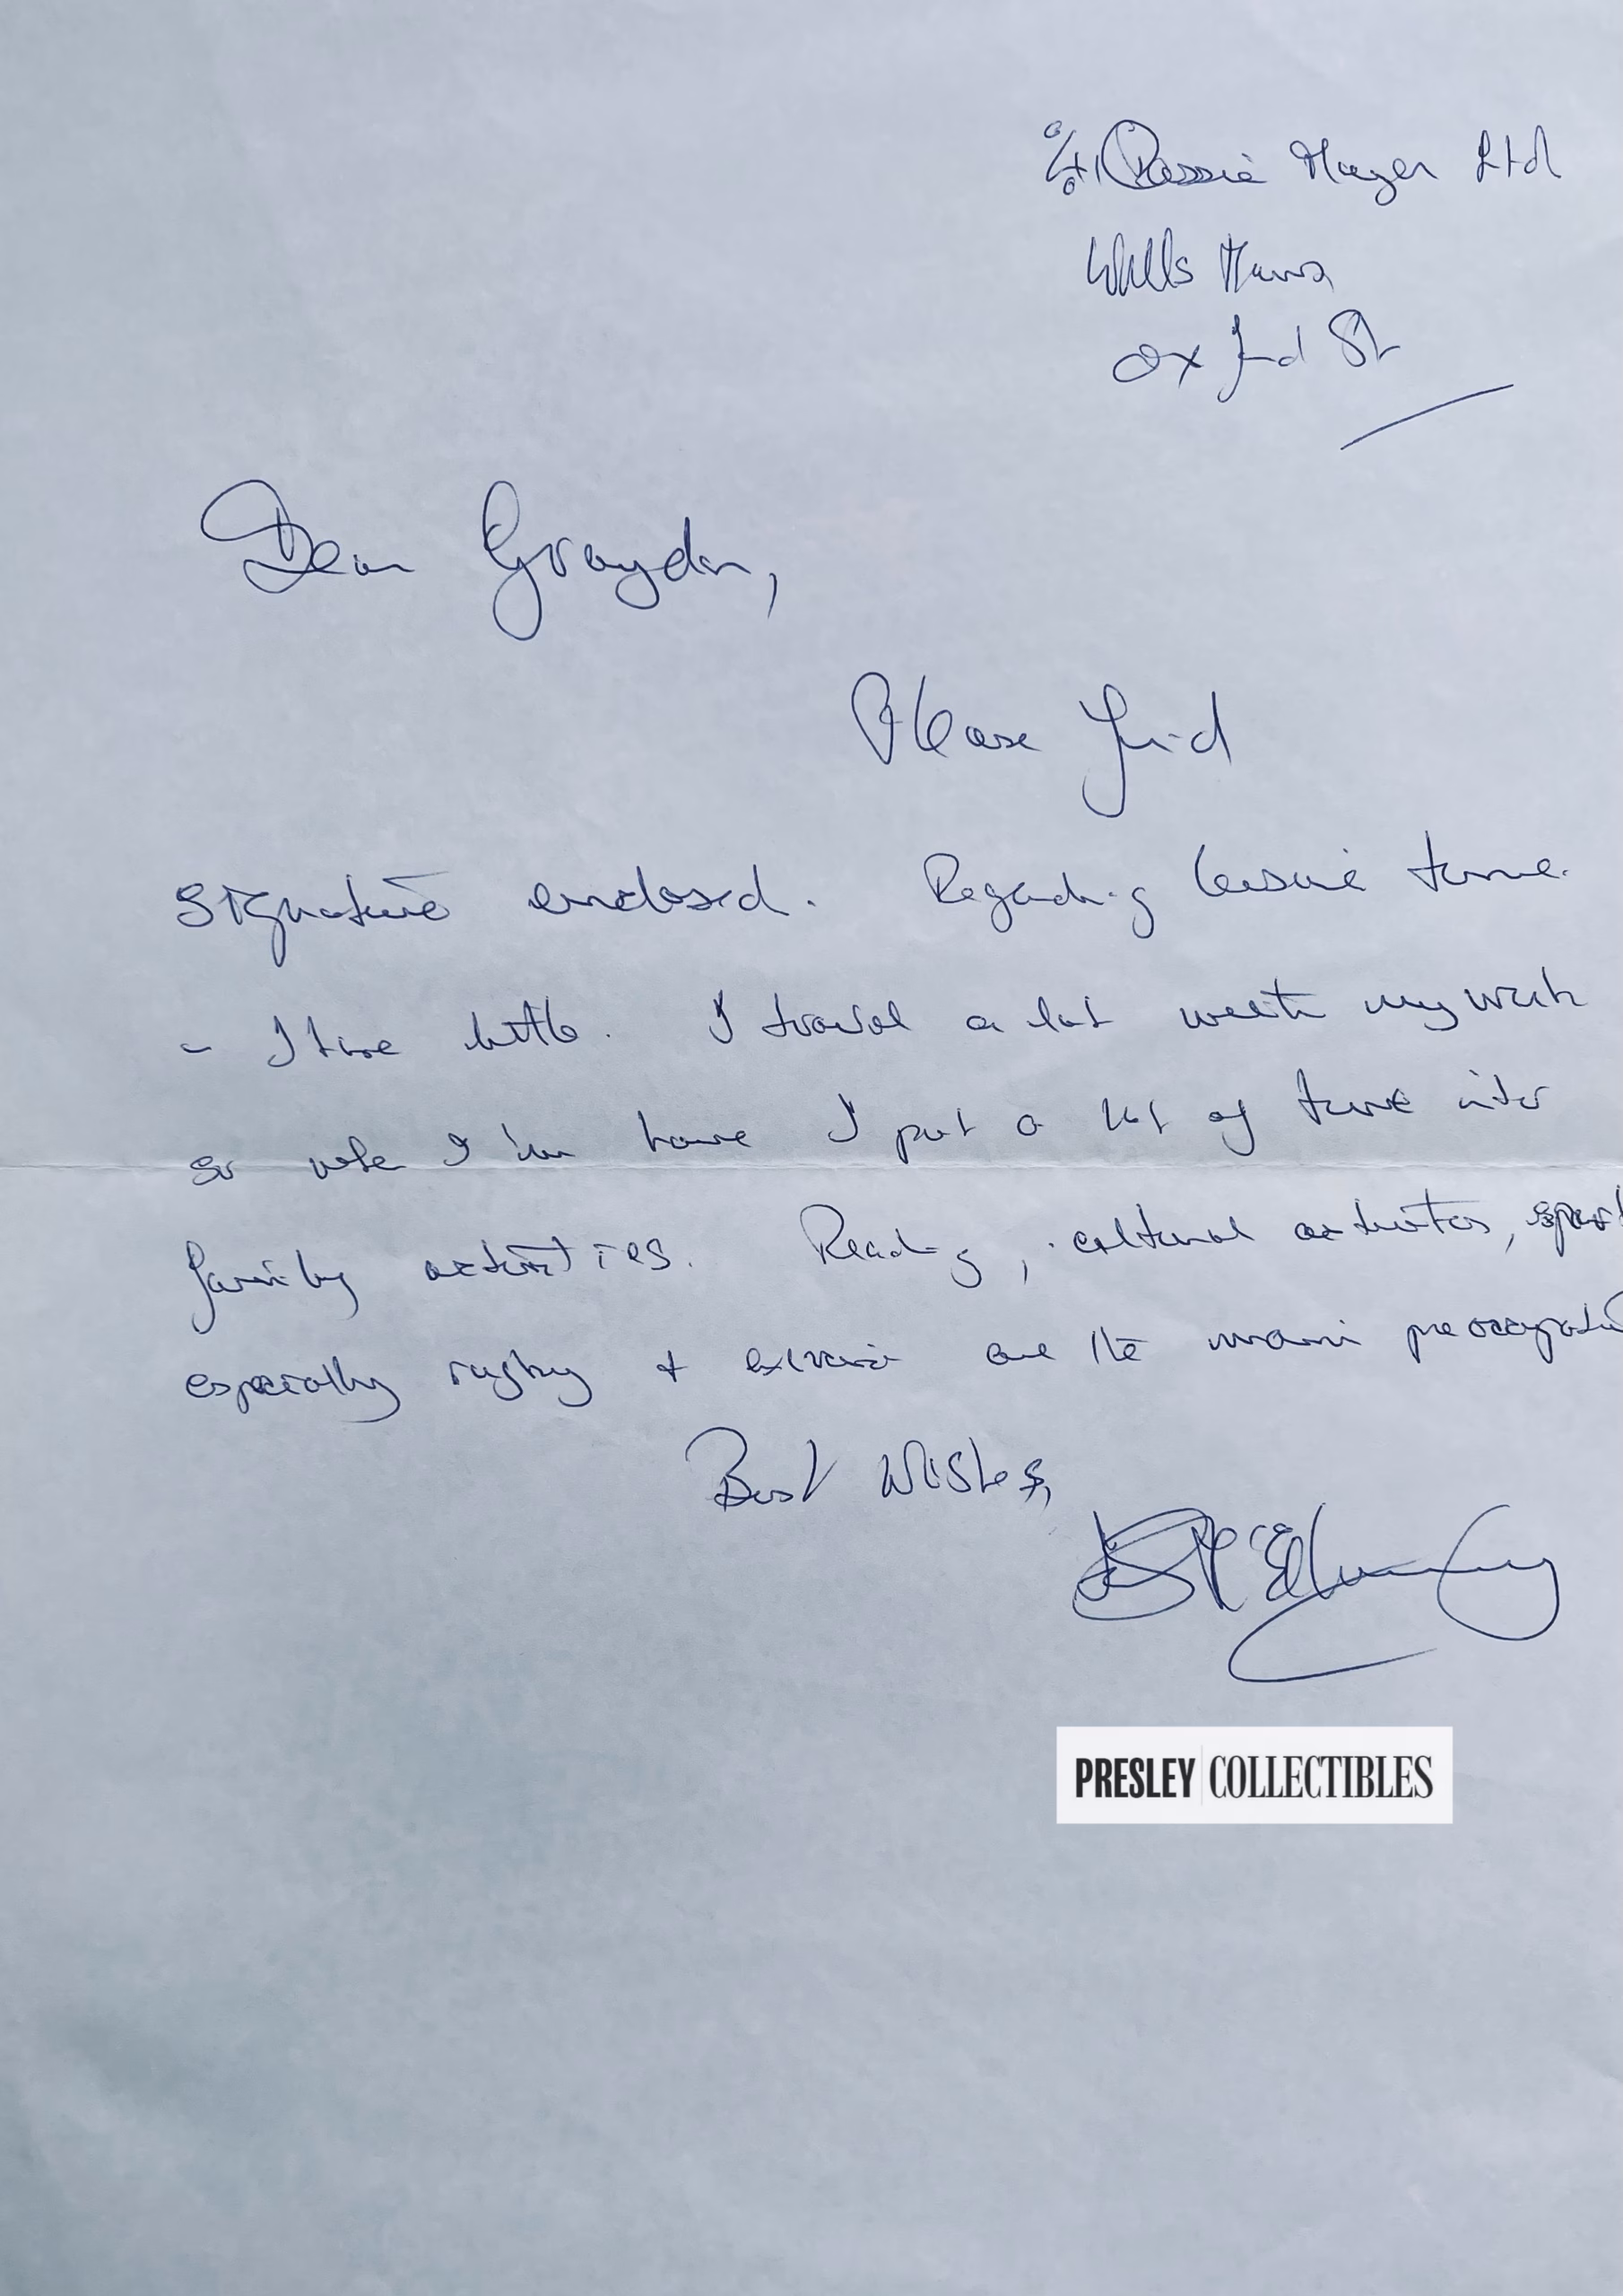 c/o Cassie Mayer Ltd
Wells Mews
Oxford St
Dear Graydon,
Please find
signature enclosed. Regarding leisure time.
- I have little. I travel a lot with my work
so when I'm home I put a lot of time into
family activities. Reading, cultural activities, sport
especially rugby & exercise are the main
Best Wishes,
PRESLEY COLLECTIBLES